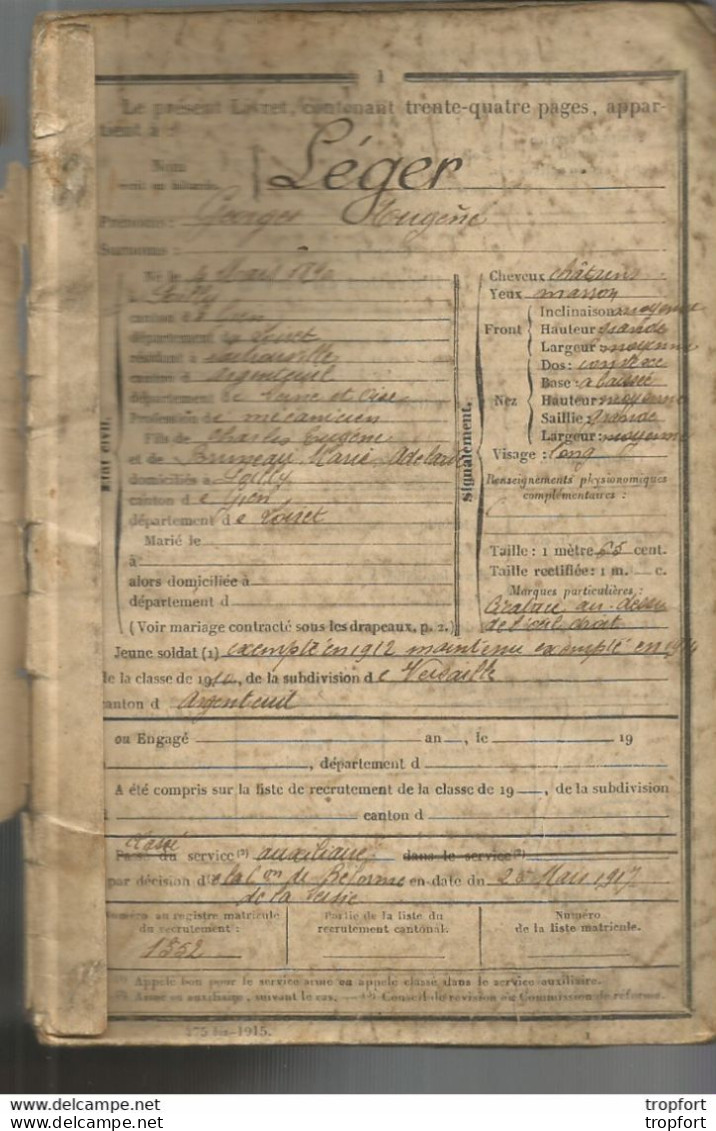 1
Le présent Livret, contenant trente-quatre pages, appar-
tient à :
Nom
écrit en bâtarde.
Léger
Prénoms : Georges Eugène
Surnoms :
Né le 4 Mars 1890
à Poilly
canton de Gien
département du Loiret
résidant à
canton d'Argenteuil
département de Seine et Oise
Profession de mécanicien
Fils de Charles Eugène
et de Bruneau Marie Adelaïde
domiciliés à Poilly
canton de Gien
département de Loiret
Marié le
à
alors domiciliée à
département d
(Voir mariage contracté sous les drapeaux, p. 2.)
État civil.
Signalement.
Cheveux châtains
Yeux marron
Front
Inclinaison moyenne
Hauteur grande
Largeur moyenne
Nez
Dos : convexe
Base : abaissée
Hauteur : moyenne
Saillie : grande
Largeur : moyenne
Visage : long
Renseignements physionomiques
complémentaires :
Taille : 1 mètre 65 cent.
Taille rectifiée : 1 m. c.
Marques particulières :
au-dessu
de l'oeil droit
Jeune soldat (1) exempté en 1912 maintenu exempté en 1914
de la classe de 1910, de la subdivision de Versaille
canton d Argenteuil
ou Engagé an , le 19
, département d
A été compris sur la liste de recrutement de la classe de 19 , de la subdivision
canton d
Classé
Passé du service (2) auxiliaire dans le service (2)
par décision de la Con de Réforme en date du 26 Mars 1917
de la Seine
Numéro au registre matricule
du recrutement :
1552
Partie de la liste du
recrutement cantonal.
Numéro
de la liste matricule.
(1) Appelé bon pour le service armé ou appelé classé dans le service auxiliaire.
(2) Armé ou auxiliaire, suivant le cas. — (3) Conseil de révision ou Commission de réforme.
175 bis-1915.
1
www.delcampe.net
tropfort
www.delcampe.net
tropfort